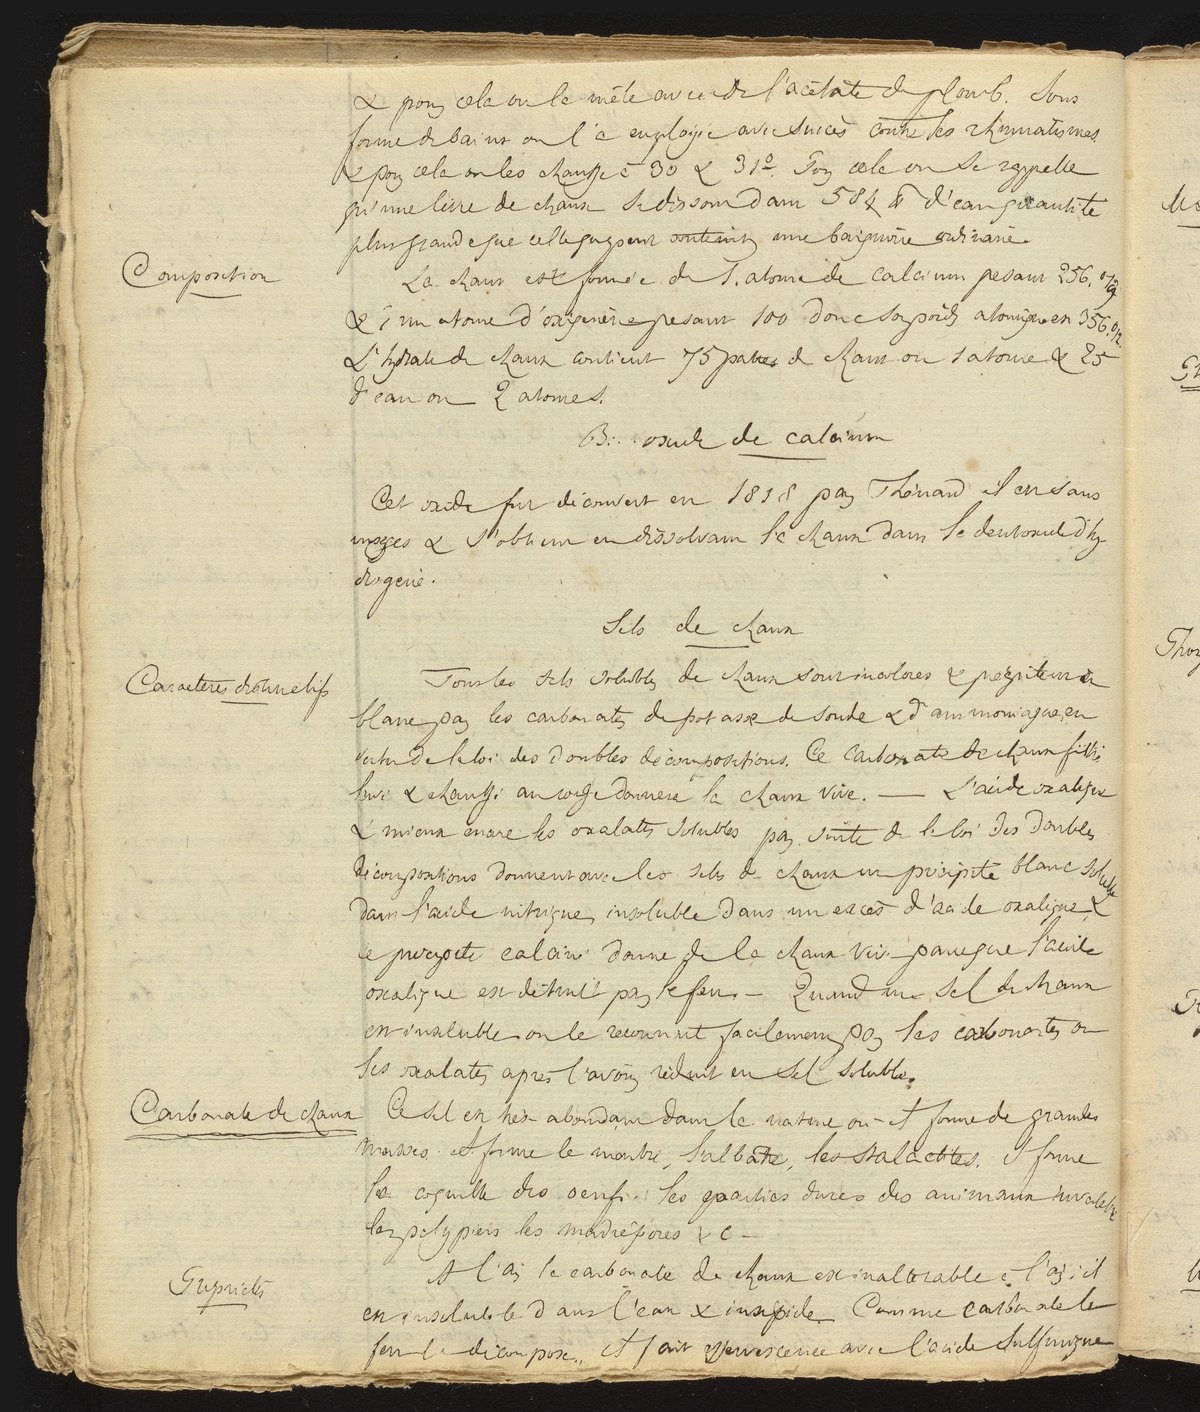 & pour cela on le mêle avec de l'acétate de plomb. Sous
forme de bains on l'a employée avec succès contre les rhumatismes
& pour cela on les chauffe à 30 & 31°. Pour cela on se rappelle
qu'une livre de chaux se dissout dans 584 ℔ d'eau quantité
plus grande que celle que peut contenir une baignoire ordinaire.
Composition
La chaux est formée de 1. atome de calcium pesant 256.
& d'un atome d'oxigène pesant 100 donc son poids atomique est 356.
L'hydrate de chaux contient 75 parties de chaux ou 1 atome & 25
d'eau ou 2 atomes.
Bi.... oxide de calcium
Cet oxide fut découvert en 1818 par Thénard il est sans
usages & s'obtient en dissolvant la chaux dans le deutoxide d'hy-
drogène.
Sels de chaux
Caractères distinctifs
Tous les sels solubles de chaux sont incolores & précipitent en
blanc par les carbonates de potasse de soude & d'ammoniaque en
vertu de la loi des doubles décompositions. Ce carbonate de chaux filtré
lavé & chauffé au rouge donnera la chaux vive. — L'acide oxalique
& mieux encore les oxalates solubles par suite de la loi des doubles
décompositions donnent avec les sels de chaux un précipité blanc soluble
dans l'acide nitrique, insoluble dans un excès d'acide oxalique, &
ce précipité calciné donne de la chaux vive parceque l'acide
oxalique est détruit par le feu. — Quand un sel de chaux
est insoluble on le reconnait facilement par les carbonates ou
les oxalates après l'avoir réduit en sel soluble.
Carbonate de chaux
Ce sel est très abondant dans la nature où il forme de grandes
masses. il forme le marbre, l'albatre, les stalactites. il forme
la coquille des oeufs. les parties dures des animaux
les polypiers les madrépores &c —
Propriétés
A l'air le carbonate de chaux est inaltérable à l'air; il
est insoluble dans l'eau & insipide. Comme carbonate le
feu le décompose. Il fait effervescence avec l'acide sulfurique